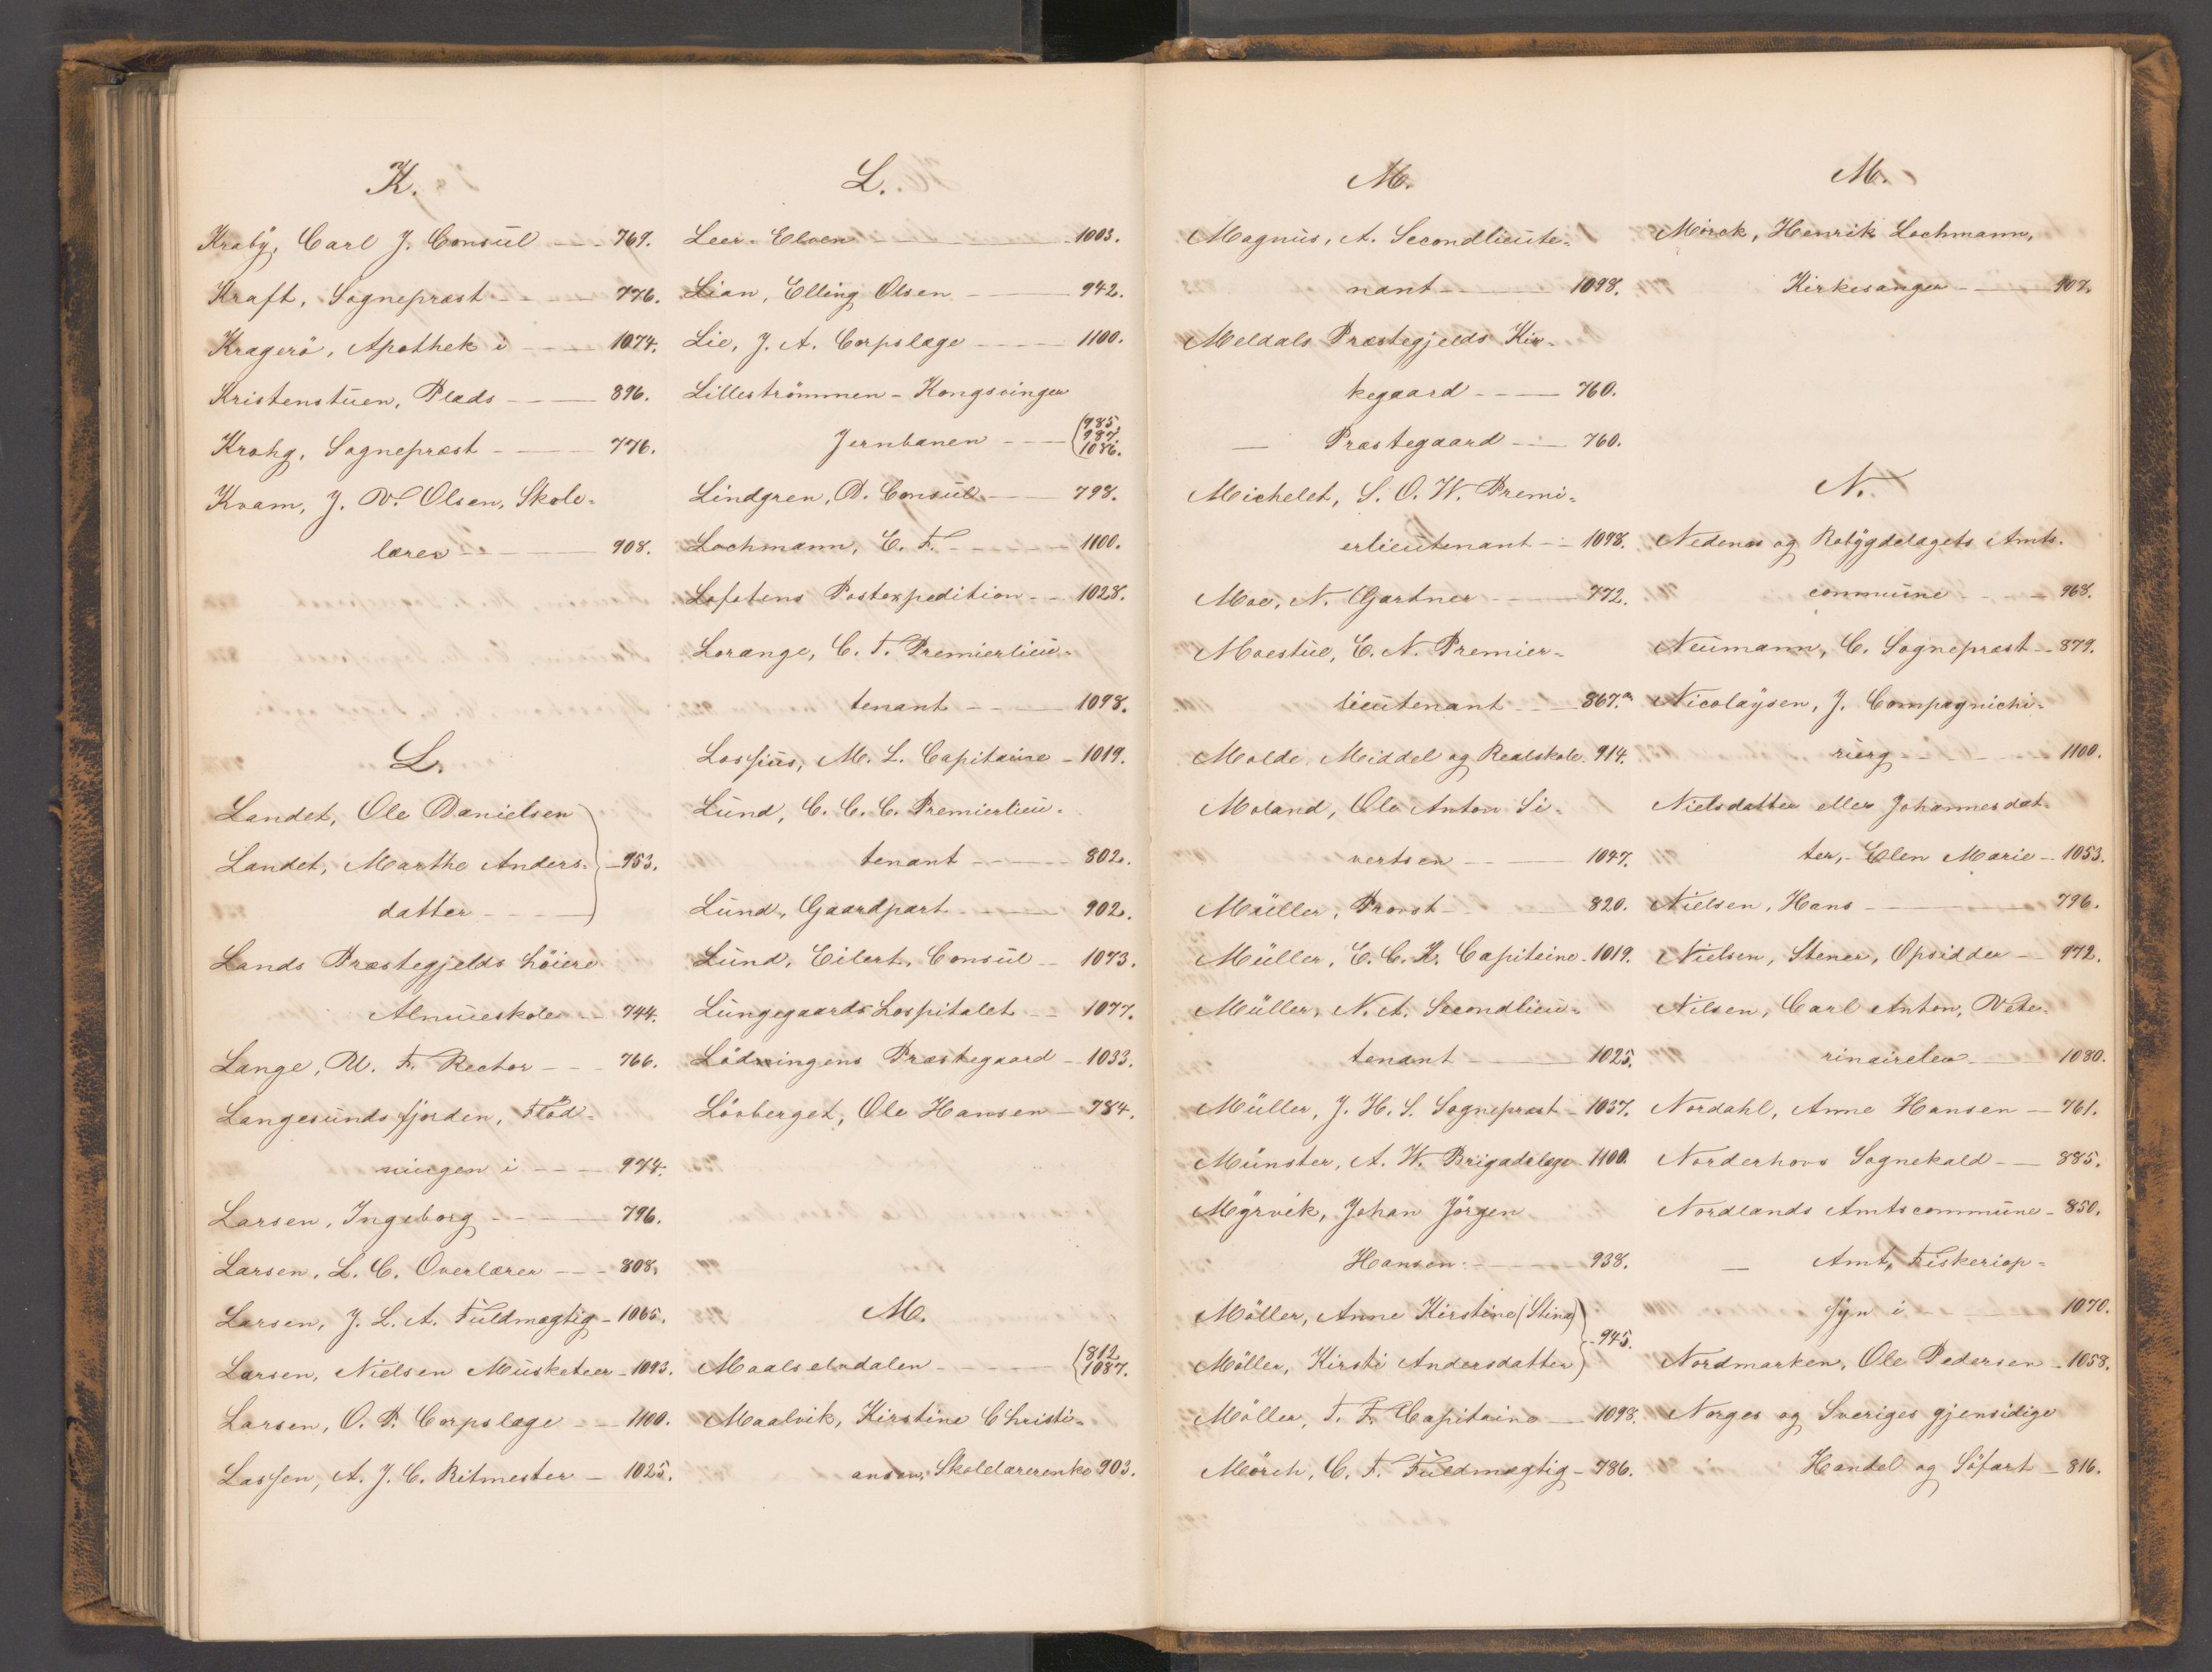 K.
Kraby, Carl J. Consul - - - 769.
Kraft, Sognepræst - - - 776.
Kragerö, Apothek i - - - 1074.
Kristenstuen, Plads - - - 896.
Krohg, Sognepræst - - - 776.
Kvam, J. W. Olsen, Skole-
lærer - - - 908.
L.
Landet, Ole Danielsen
Landet, Marthe Anders- - 953.
datter - - -
Lands Præstegjelds höiere
Almueskole - - 744.
Lange, U. F. Rector - - - 766.
Langesundsfjorden, Flöd-
ningen i - - - 974.
Larsen, Ingeborg - - - 796.
Larsen, L. C. Overlærer - - - 808.
Larsen, J. L. A. Fuldmægtig - 1065.
Larsen, Nielsen Musketeer - 1093.
Larsen, O. P. Corpslæge - - 1100.
Lassen, A. J. C. Ritmester - 1025.
L.
Leer-Elven - - - 1003.
Lian, Elling Olsen - - - 942.
Lie, J. A. Corpslæge - - - 1100.
Lilleströmmen - Kongsvinger
985.
Jernbanen - - - 987.
1086.
Lindgren, D. Consul - - - 798.
Lochmann, E. F. - - - 1100.
Lofotens Postexpedition - - 1028.
Lorange, C. F. Premierlieu-
tenant - - - 1098.
Lossius, M. L. Capitaine - 1019.
Lund, C. C. C. Premierlieu-
tenant - - - 802.
Lund, Gaardpart - - - 902.
Lund, Eilert, Consul - - 1073.
Lungegaardshospitalet - - 1077.
Lödingens Præstegaard - 1033.
Lövberget, Ole Hansen - 784.
M.
Maalselvdalen - - - 812.
1087.
Maalvik, Kirstine Christi-
ansen, Skolelærerenke 903.
M.
Magnus, A. Secondlieute-
nant - - - 1098.
Meldals Præstegjelds Kir-
kegaard - - - 760.
— Præstegaard - - - 760.
Michelet, S. O. W. Premi-
erlieutenant - - 1098.
Moe, N. Gartner - - - 772.
Moestue, E. N. Premier-
lieutenant - - - 867.a
Molde, Middel og Realskole. 914.
Moland, Ole Anton Si-
vertsen - - - 1047.
Müller, Provst - - - 820.
Müller, E. C. K. Capitaine - 1019.
Müller, N. A. Secondlieu-
tenant - - - 1025.
Müller, J. H. S. Sognepræst - 1037.
Münster, A. W. Brigadelæge - 1100.
Myrvik, Johan Jörgen
Hansen - - - 938.
Möller, Anne Kirstine (Stina)
- 945.
Möller, Kirsti Andersdatter
Möller, F. F. Capitaine - 1098.
Mörch, C. F. Fuldmægtig - 786.
M.
Mörck, Henrik Lochmann,
Kirkesanger - - - 907.
N.
Nedenæs og Robygdelagets Amts-
commune - - - 968.
Neumann, C. Sognepræst - - 879.
Nicolaysen, J. Compagnichi-
rurg - - - 1100.
Nielsdatter eller Johannesdat-
ter, Elen Marie - 1053.
Nielsen, Hans - - - 796.
Nielsen, Stener, Opsidder - 972.
Nilsen, Carl Anton, Vete-
rinairelev - - - 1080.
Nordahl, Anne Hansen - 761.
Norderhovs Sognekald - - 885.
Nordlands Amtscommune - 850.
— Amt, Fiskeriop-
syn i - - - 1070.
Nordmarken, Ole Pedersen - 1058.
Norges og Sveriges gjensidige
Handel og Söfart - 816.